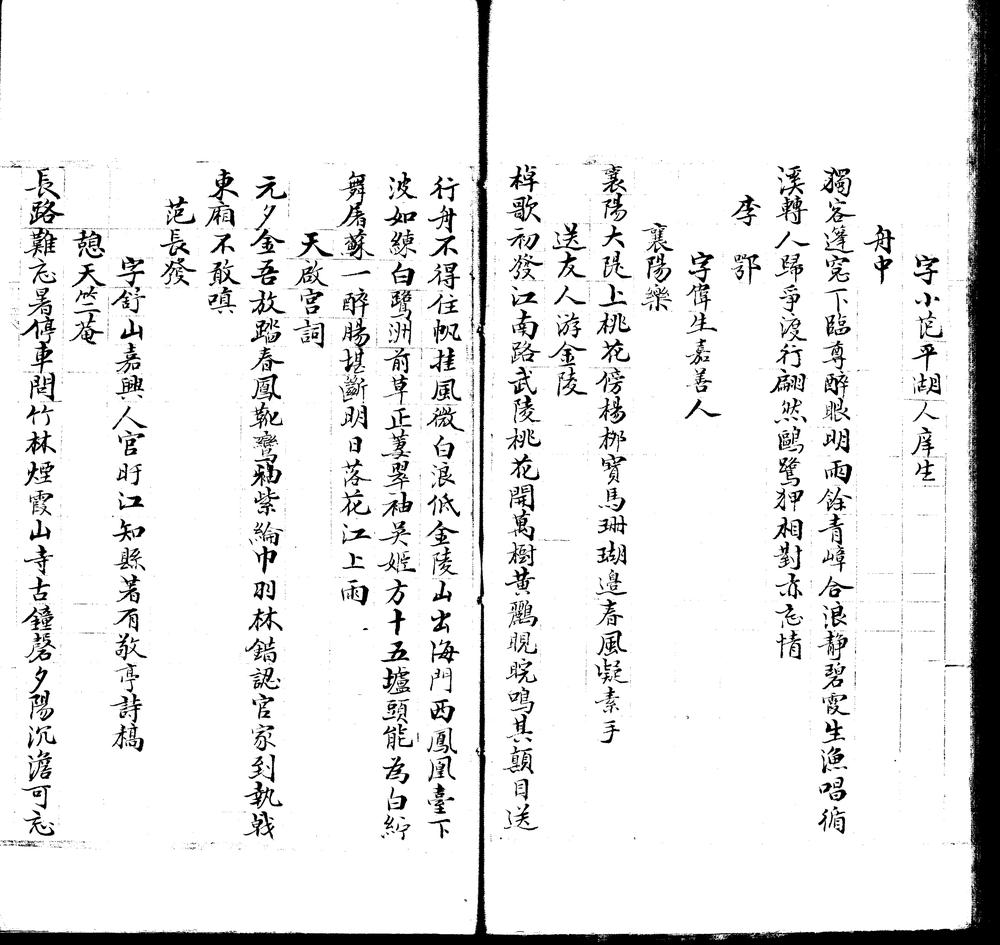 字小范平湖人庠生
舟中
獨客篷窓下臨尊醉眼明雨餘青嶂合浪靜碧霞生漁唱循
溪轉人歸爭渡行翩然鷗鷺狎相對亦忘情
李鄂
字偉生嘉善人
襄陽樂
襄陽大隄上桃花傍楊柳寶馬珊瑚邉春風凝素手
送友人游金陵
棹歌初發江南路武陵桃花開萬樹黃鸝睍睆鳴其顛目送
行舟不得住帆挂風微白浪低金陵山出海門西鳳凰臺下
波如練白鷺洲前草正萋翠袖吳姬方十五壚頭能為白紵
舞屠蘇一醉腸堪斷明日落花江上雨
天啟宮詞
元夕金吾放踏春鳳靴鸞袖紫綸巾羽林錯認官家到執戟
東廂不敢嗔
范長發
字舒山嘉興人官盱江知縣著有敬亭詩稿
憩天竺菴
長路難忘暑停車問竹林煙霞山寺古鐘磬夕陽沉澹可忘